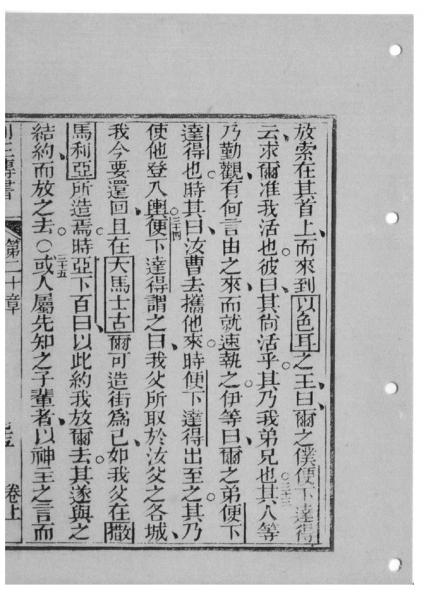 放索在其首上而來到以色耳之王曰爾之僕便下達得
云求爾准我活也彼曰其尚活乎其乃我弟兄也○三十三其人等
乃勤觀有何言由之來而就速執之伊等曰爾之弟便下
達得也時其曰汝曹去攜他來時便下達得出至之其乃
使他登入輿○三十四便下達得謂之曰我父所取於汝父之各城
我今要還回且在大馬士古爾可造街為己如我父在撒
馬利亞所造焉時亞下百曰以此約我放爾去其遂與之
結約而放之去○三十五或人屬先知之子輩者以神主之言而
列王傳書 第二十章 卷上